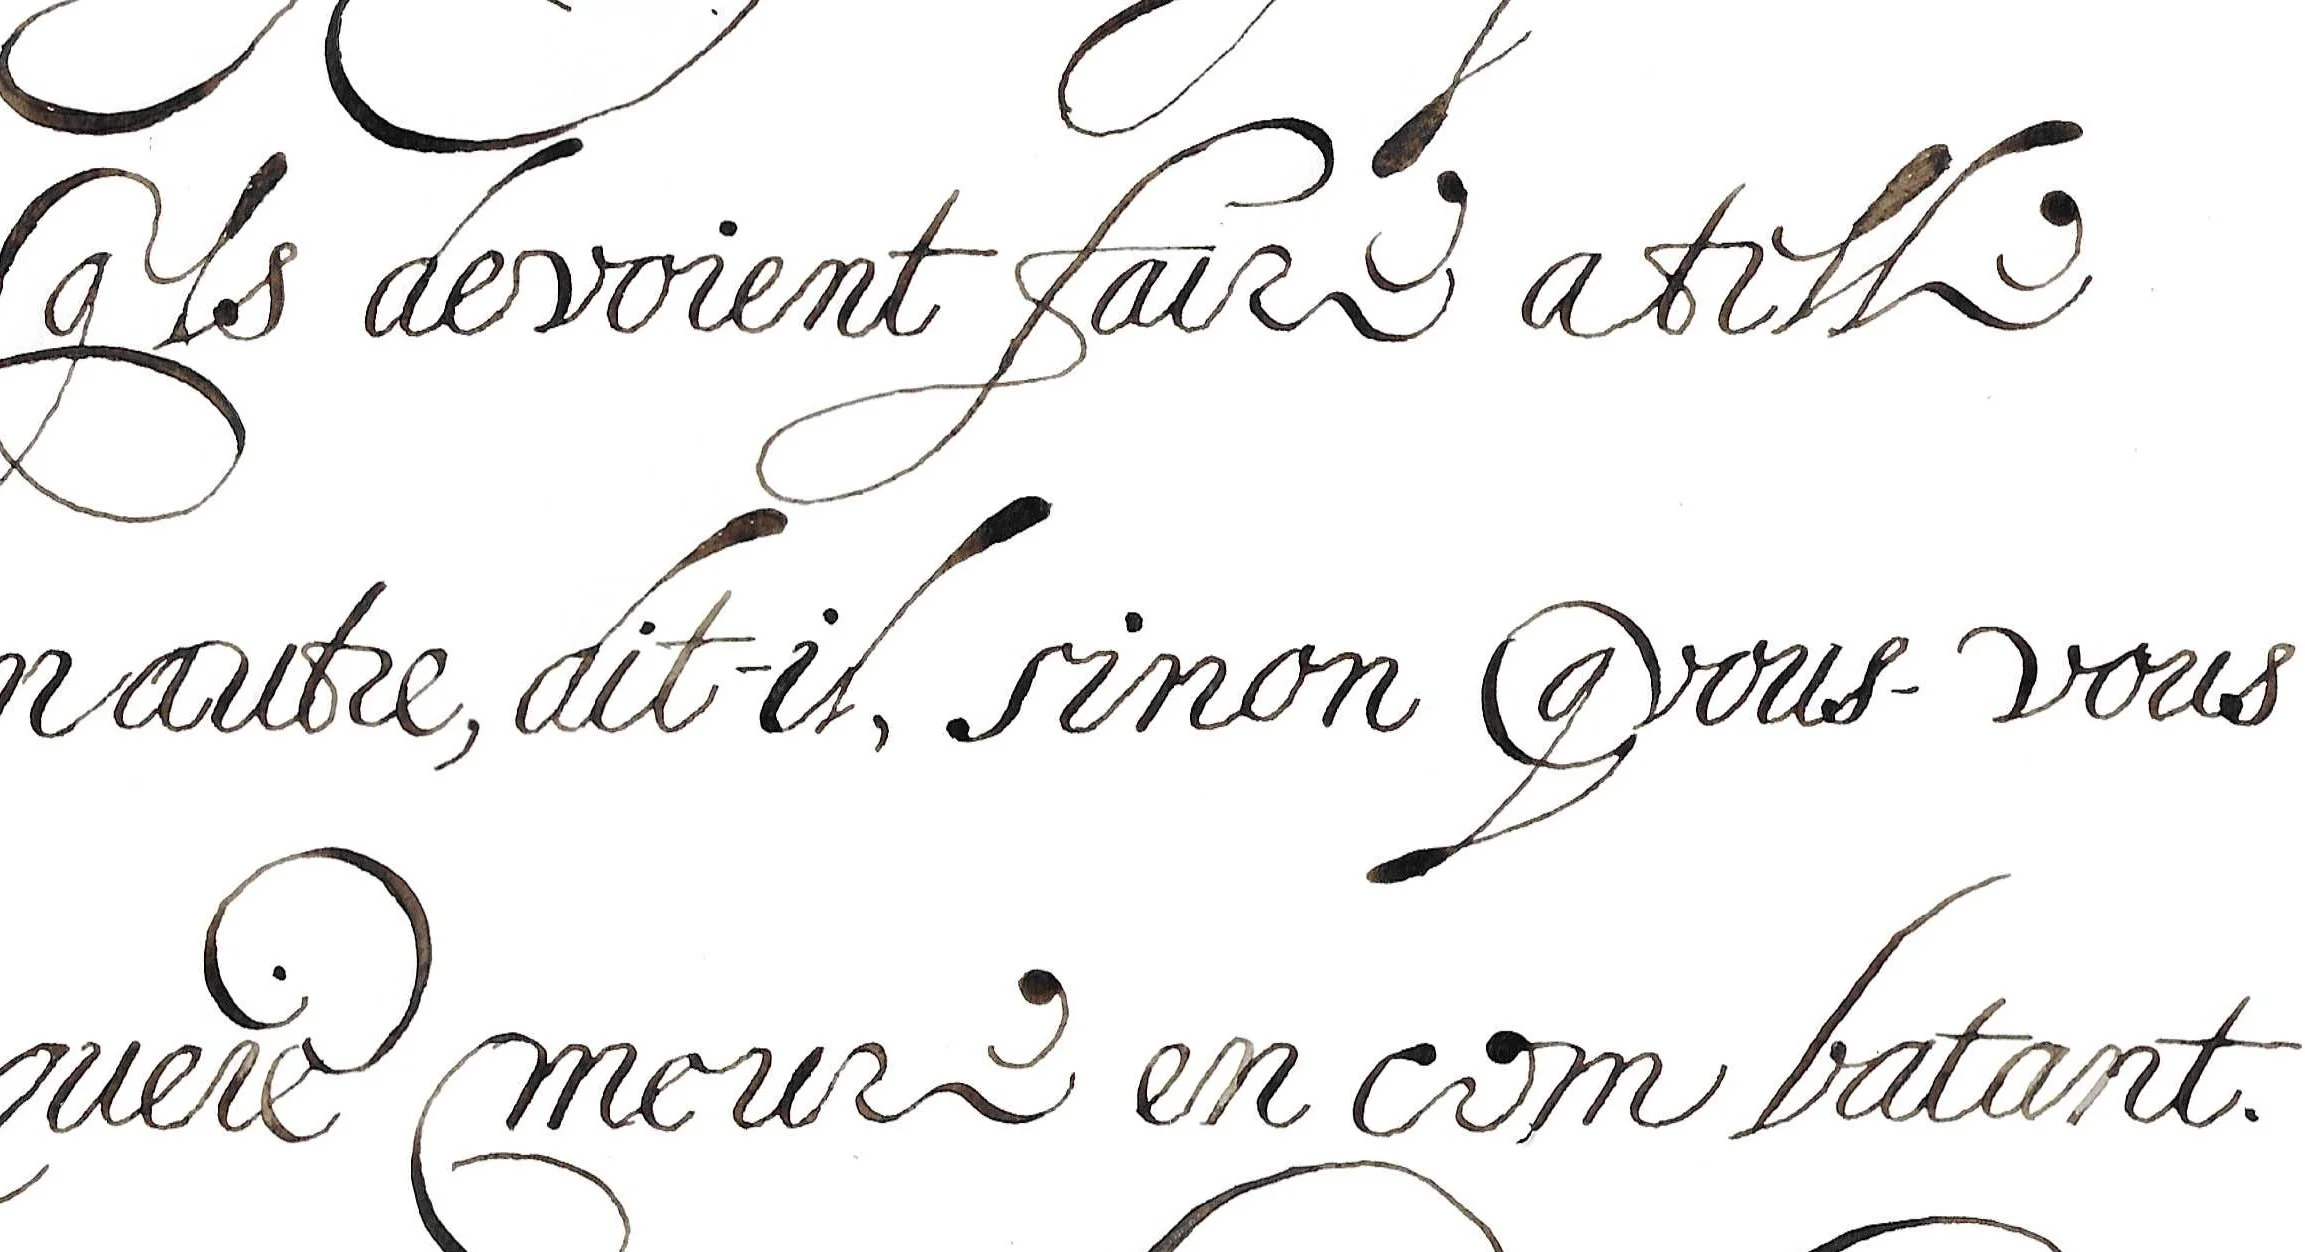 qls devoient faire a tille
n autre, dit-il, sinon q vous-vous
guere meure en com batant.